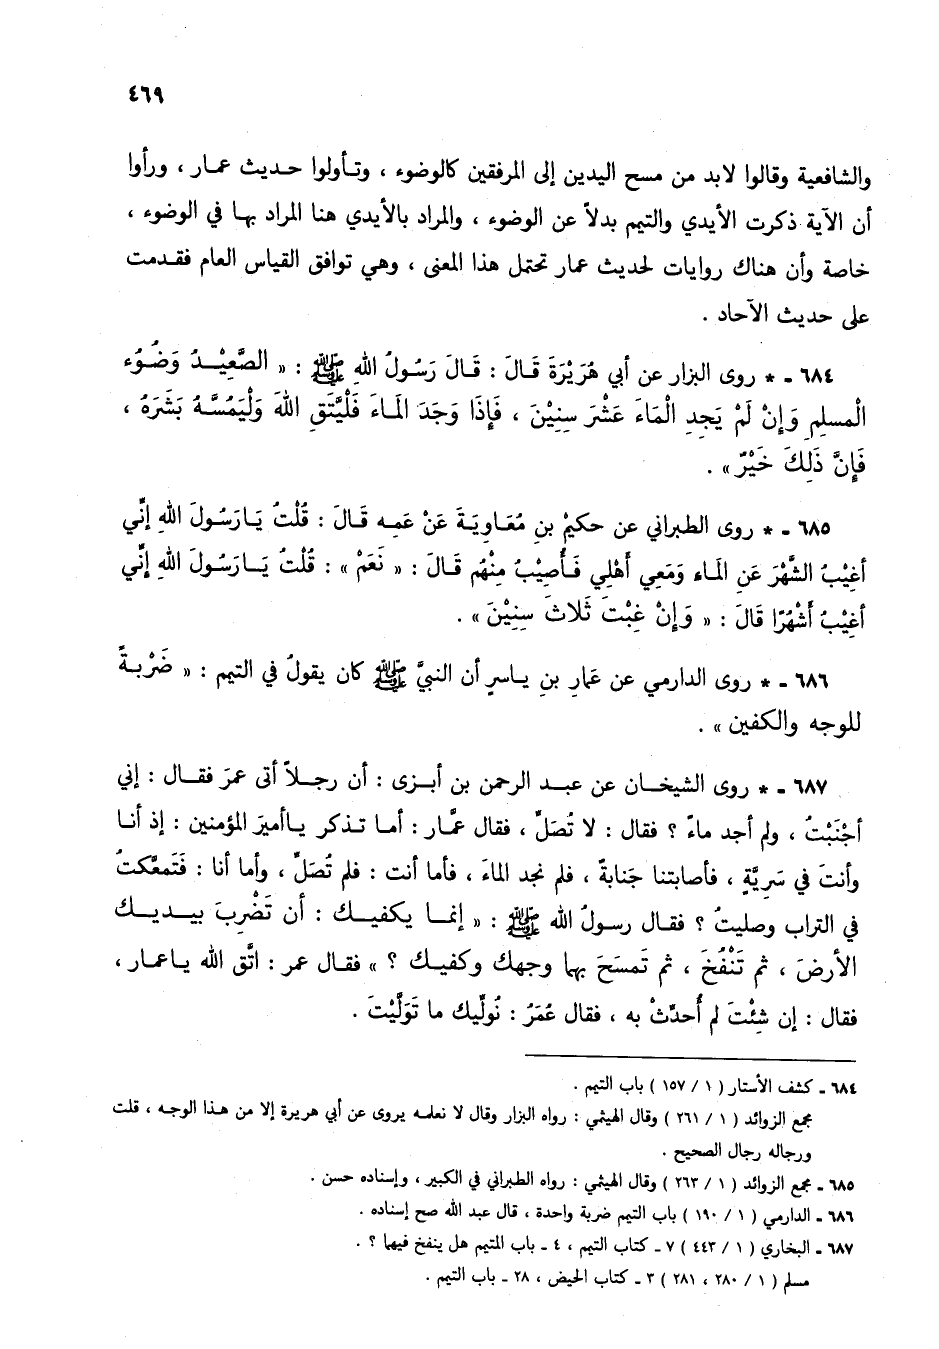 ٤٦٩
والشافعية وقالوا لابد من مسح اليدين إلى المرفقين كالوضوء ، وتأولوا حديث عمار ، ورأوا
أن الآية ذكرت الأيدي والتيم بدلاً عن الوضوء ، والمراد بالأيدي هنا المراد بها في الوضوء ،
خاصة وأن هناك روايات لحديث عمار تحتمل هذا المعنى ، وهي توافق القياس العام فقدمت
على حديث الآحاد .
٦٨٤ ـ * روى البزار عن أبي هُرَيْرَةَ قَالَ : قَالَ رَسُولُ اللهِ ﷺ : « الصَّعِيْدُ وَضُوُء
الْمسلِمِ وَإِنْ لَمْ يَجِدِ الْمَاءَ عَشْرَ سِنِيْنَ ، فَإِذَا وَجَدَ المَاءَ فَلْيَتَّقِ اللهَ وَلْيَمُسَّهُ بَشَرَهُ ،
فَإِنَّ ذَلِكَ خَيْرٌ » .
٦٨٥ ـ * روى الطبراني عن حكيمْ بنِ مُعَاوِيَةَ عَنْ عَمِه قَالَ : قُلْتُ يَارَسُولَ اللهِ إنِّي
أغِيْبُ الشَّهْرَ عَنِ المَاء وَمَعِي أَهْلِي فَأُصِيْبُ مِنْهُم قَالَ : « نَعَمْ » : قُلْتُ يَارَسُولَ اللهِ إنِّي
أغِيْبُ أَشْهُرًا قَالَ : « وَإِنْ غِبْتَ ثَلاثَ سِنِيْنَ » .
٦٨٦ ـ * روى الدارمي عن عمارِ بنِ ياسرٍ أن النبيَّ ﷺ كان يقولُ في التيم : « ضَرْبةً
للوجه والكفين » .
٦٨٧ ـ * روى الشيخان عن عبد الرحمن بن أبزى : أن رجلاً أتى عمرَ فقال : إني
أجْنَبْتُ ، ولم أجد ماءً ؟ فقال : لا تُصَلِّ ، فقال عمَّار : أما تذكر ياأميرَ المؤمنين : إذ أنا
وأنتَ في سَرِيَّةٍ ، فأصابتنا جَنابةً ، فلم نجد الماءَ ، فأما أنت : فلم تُصَلِّ ، وأما أنا : فَتَمعَّكتُ
في التراب وصليتُ ؟ فقال رسولُ الله ﷺ : « إنما يكفيك : أن تَضْرِبَ بيديك
الأرضَ ، ثم تَنْفُخَ ، ثم تَمسَحَ بها وجهك وكفيك ؟ » فقال عمر : اتَّق الله ياعمار ،
فقال : إن شِئْتَ لم أُحدِّثْ به ، فقال عُمَرُ : نُولِّيك ما تَوَلَّيْتَ .
٦٨٤ ـ كشف الأستار ( ١ / ١٥٧ ) باب التيم .
مجمع الزوائد ( ١ / ٢٦١ ) وقال الهيثمي : رواه البزار وقال لا نعلمه يروى عن أبي هريرة إلا من هذا الوجه ، قلت
ورجاله رجال الصحيح .
٦٨٥ ـ مجمع الزوائد ( ١ / ٢٦٣ ) وقال الهيثمي : رواه الطبراني في الكبير ، وإسناده حسن .
٦٨٦ ـ الدارمي ( ١ / ١٩٠ ) باب التيم ضربة واحدة ، قال عبد الله صح إسناده .
٦٨٧ ـ البخاري ( ١ / ٤٤٣ ) ٧ ـ كتاب التيم ، ٤ ـ باب المتيم هل ينفخ فيها ؟ .
مسلم ( ١ / ٢٨٠ ، ٢٨١ ) ٣ ـ كتاب الحيض ، ٢٨ ـ باب التيم .